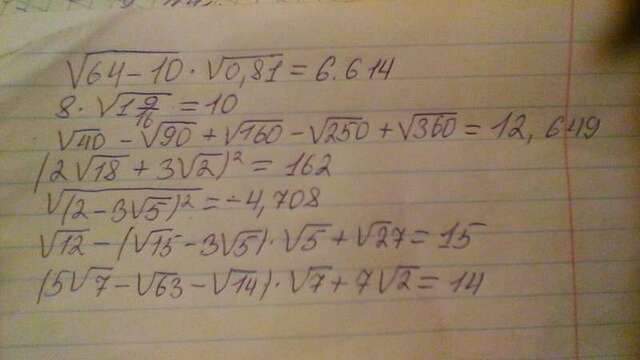 √(64-10) · √(0,81) = 6.614
8 · √(1 9/16) = 10
√40 - √90 + √160 - √250 + √360 = 12,649
(2√18 + 3√2)² = 162
√((2-3√5)²) = -4,708
√12 - (√15 - 3√5) · √5 + √27 = 15
(5√7 - √63 - √14) · √7 + 7√2 = 14